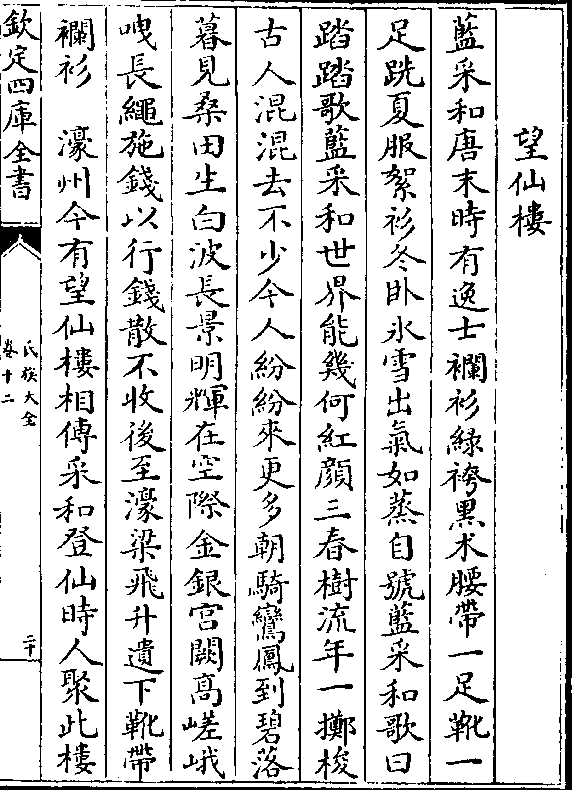 望仙樓
藍采和唐末時有逸士襴衫緑袴黒木腰帶一足靴一
足跣夏服絮衫冬卧氷雪出氣如蒸自號藍采和歌曰
踏踏歌藍采和世界能幾何紅顔三春樹流年一擲梭
古人混混去不少今人紛紛來更多朝騎鸞鳳到碧落
暮見桑田生白波長景明輝在空際金銀宫闕髙嵯峨
嗖長繩施錢以行錢散不收後至濠梁飛升遺下靴帶
襴衫　濠州今有望仙樓相傳采和登仙時人聚此樓
欽定四庫全書
氏族大全
卷十二
二十